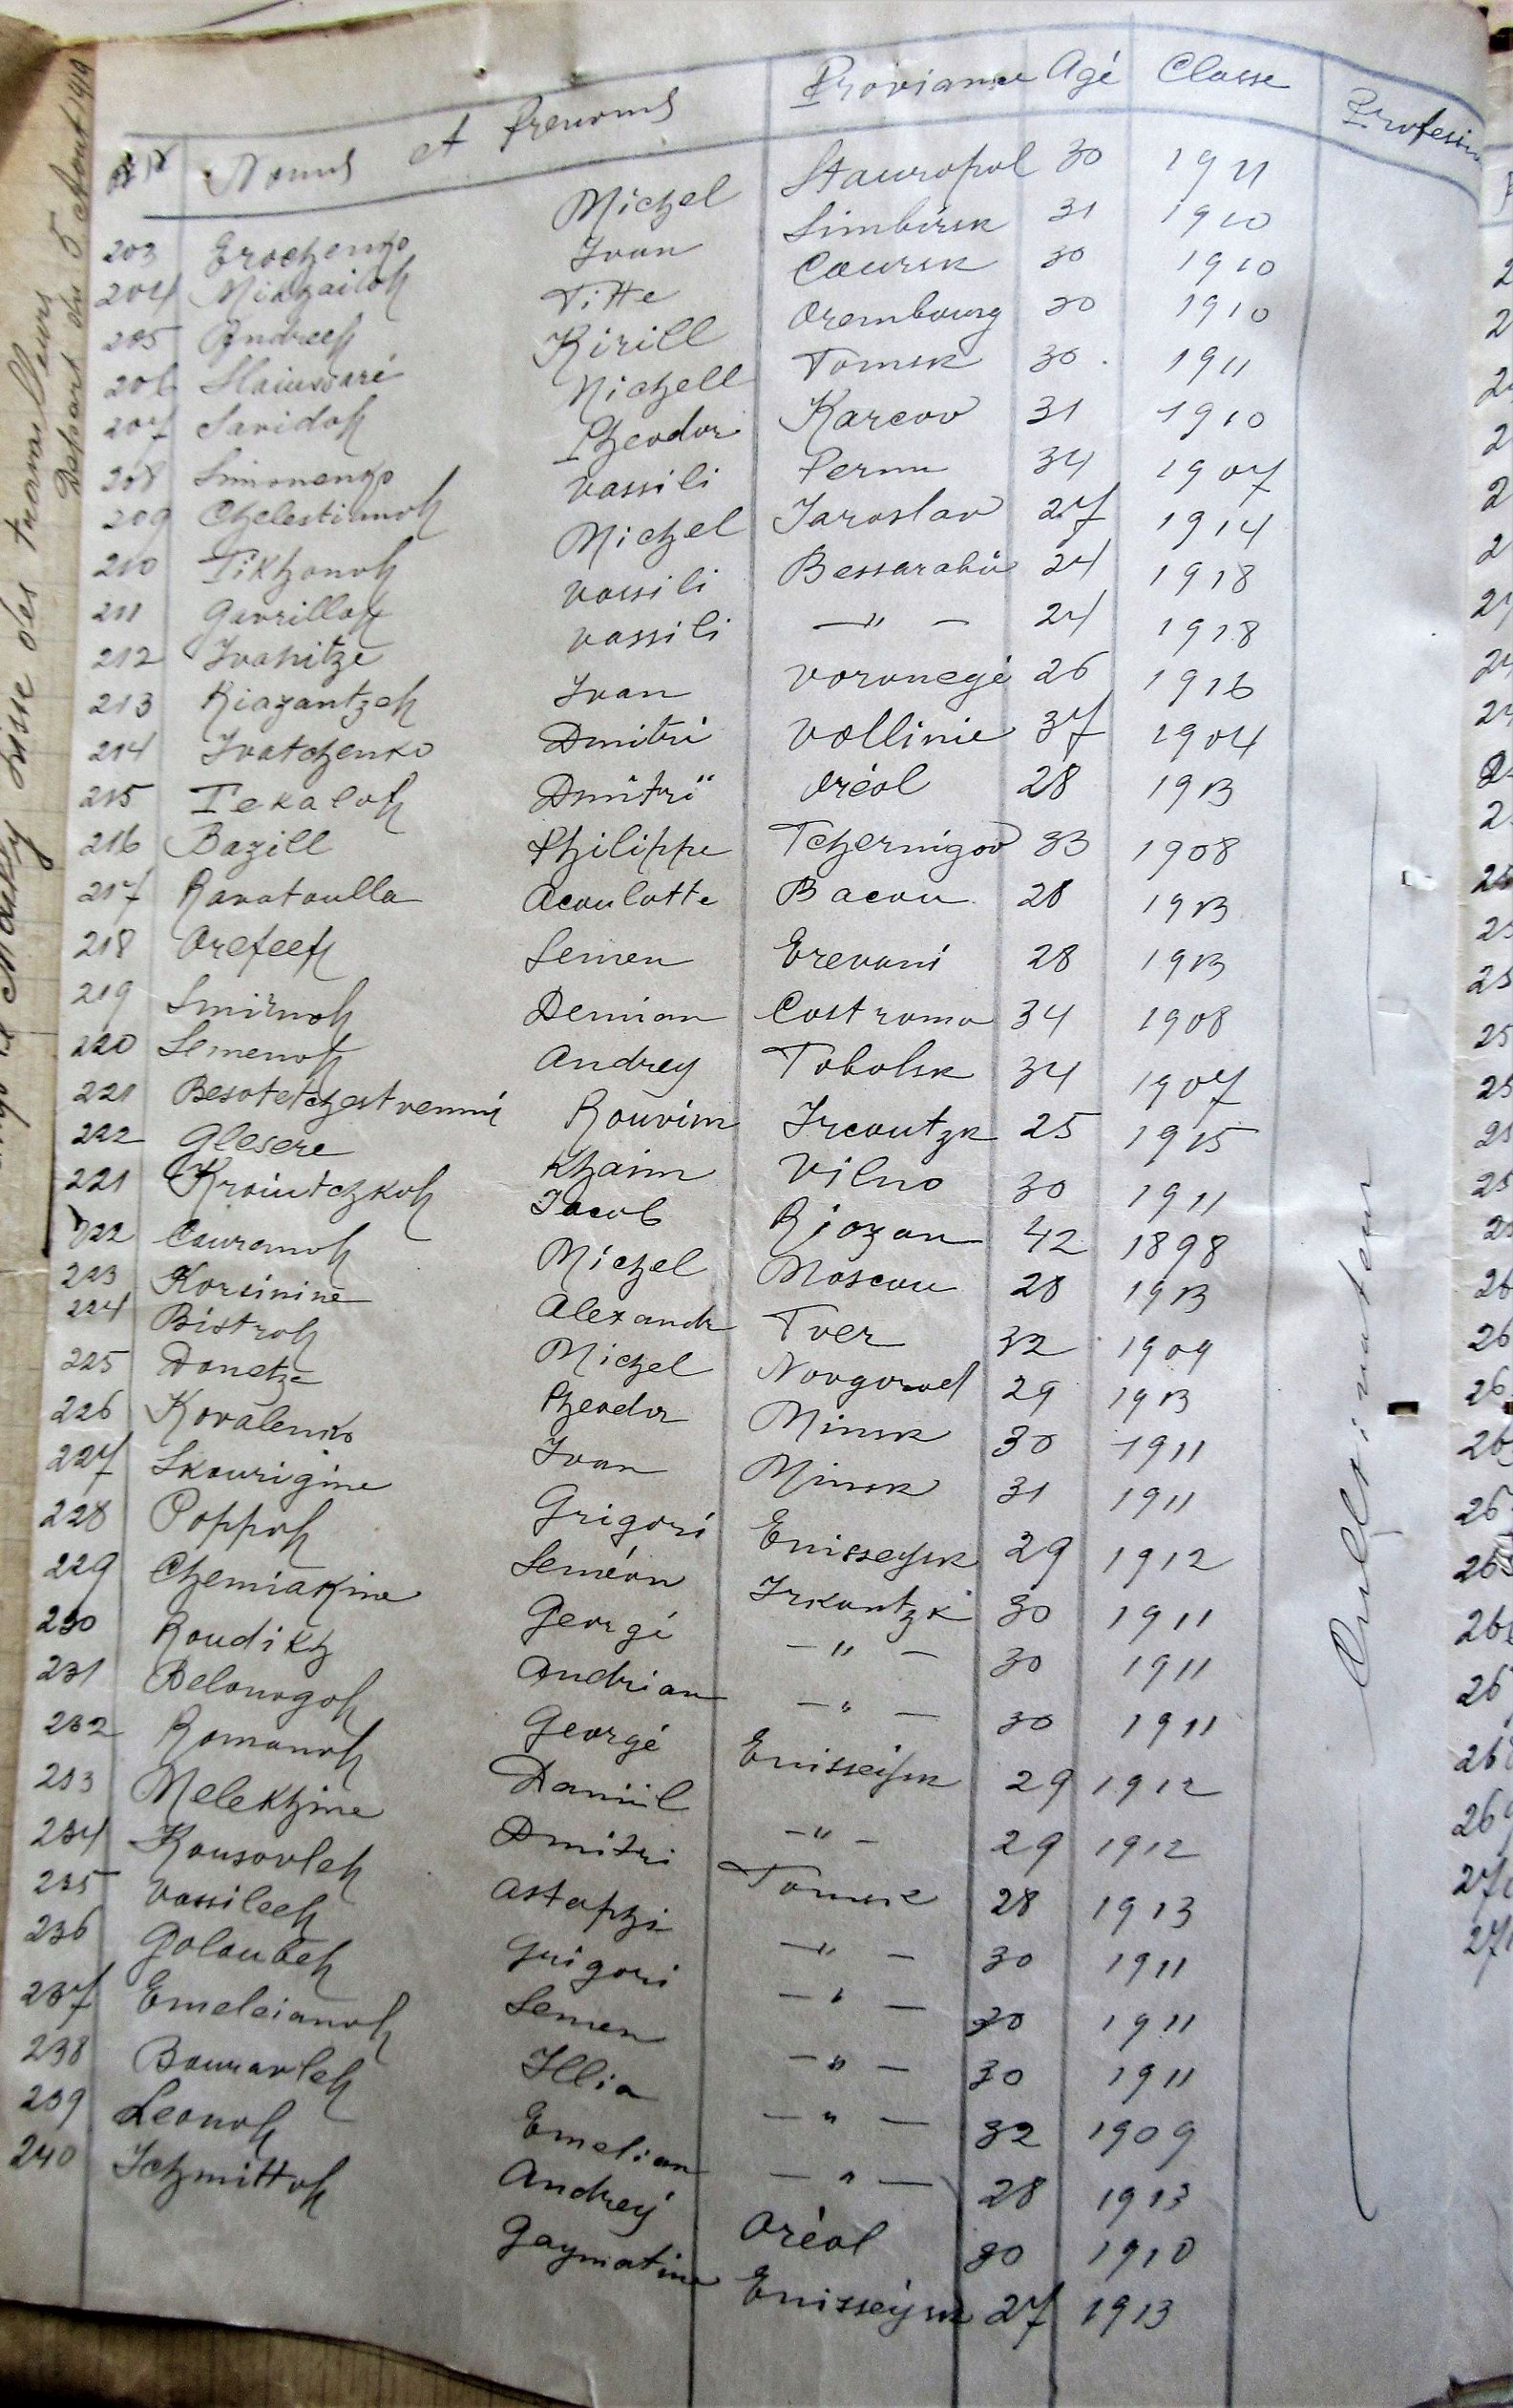 Départ du 5 Aout 1919
№ Noms et Prenoms Proviance Agé Classe Profession
203 Erochenko Michel Stauropol 30 1911
204 Mikhailoff Ivan Simbirsk 31 1910
205 Andreeff Titte Coursk 30 1910
206 Slaiussaré Kirill Orembourg 30 1910
207 Savidoff Michell Tomsk 30 1911
208 Simonenko Theodor Karcov 31 1910
209 Chelestiunoff Vassili Perm 34 1907
210 Tikhonoff Michel Jaroslav 27 1914
211 Gavrilloff Vassili Bessarabie 24 1918
212 Ivanitze Vassili —"— 24 1918
213 Riazantzeff Ivan Voronegé 26 1916
214 Ivatchenko Dmitri Vollinie 37 1904
215 Tekaloff Dmitrii Oréol 28 1913
216 Bazill Philippe Tchernigov 33 1908
217 Ravatoulla Acoulatte Bacou 28 1913
218 Orefeeff Semen Erevani 28 1913
219 Smirnoff Demian Costroma 34 1908
220 Semenoff Andrey Tobolsk 34 1907
221 Besotetchestvennii Rouvim Ircoutzk 25 1915
222 Glesere Khaim Vilno 30 1911
221 Krointchkoff Jacob Riazan 42 1898
222 Couranoff Michel Moscou 28 1913
223 Korsinine Alexandr Tver 32 1909
224 Bistroff Michel Novgorod 29 1913
225 Donetze Theodor Minsk 30 1911
226 Kovalenko Ivan Minsk 31 1911
227 Skourigine Grigori Enisseysk 29 1912
228 Poppoff Seméon Irkoutzk 30 1911
229 Chemiakine Georgé —"— 30 1911
230 Roudikh Andrian —"— 30 1911
231 Belonogoff Georgé Enisseÿsk 29 1912
232 Romanoff Daniil —"— 29 1912
233 Melekhine Dmitri Tomsk 28 1913
234 Kousovleff Astaphi —"— 30 1911
235 Vassileeff Grigori —"— 30 1911
236 Goloubeff Semen —"— 30 1911
237 Emeleianoff Illia —"— 32 1909
238 Bouravleff Emelian —"— 28 1913
239 Leonoff Andreÿ Oréol 30 1910
240 Ichmittoff Gaymatine Enisseÿsk 27 1913
Cultivateurs